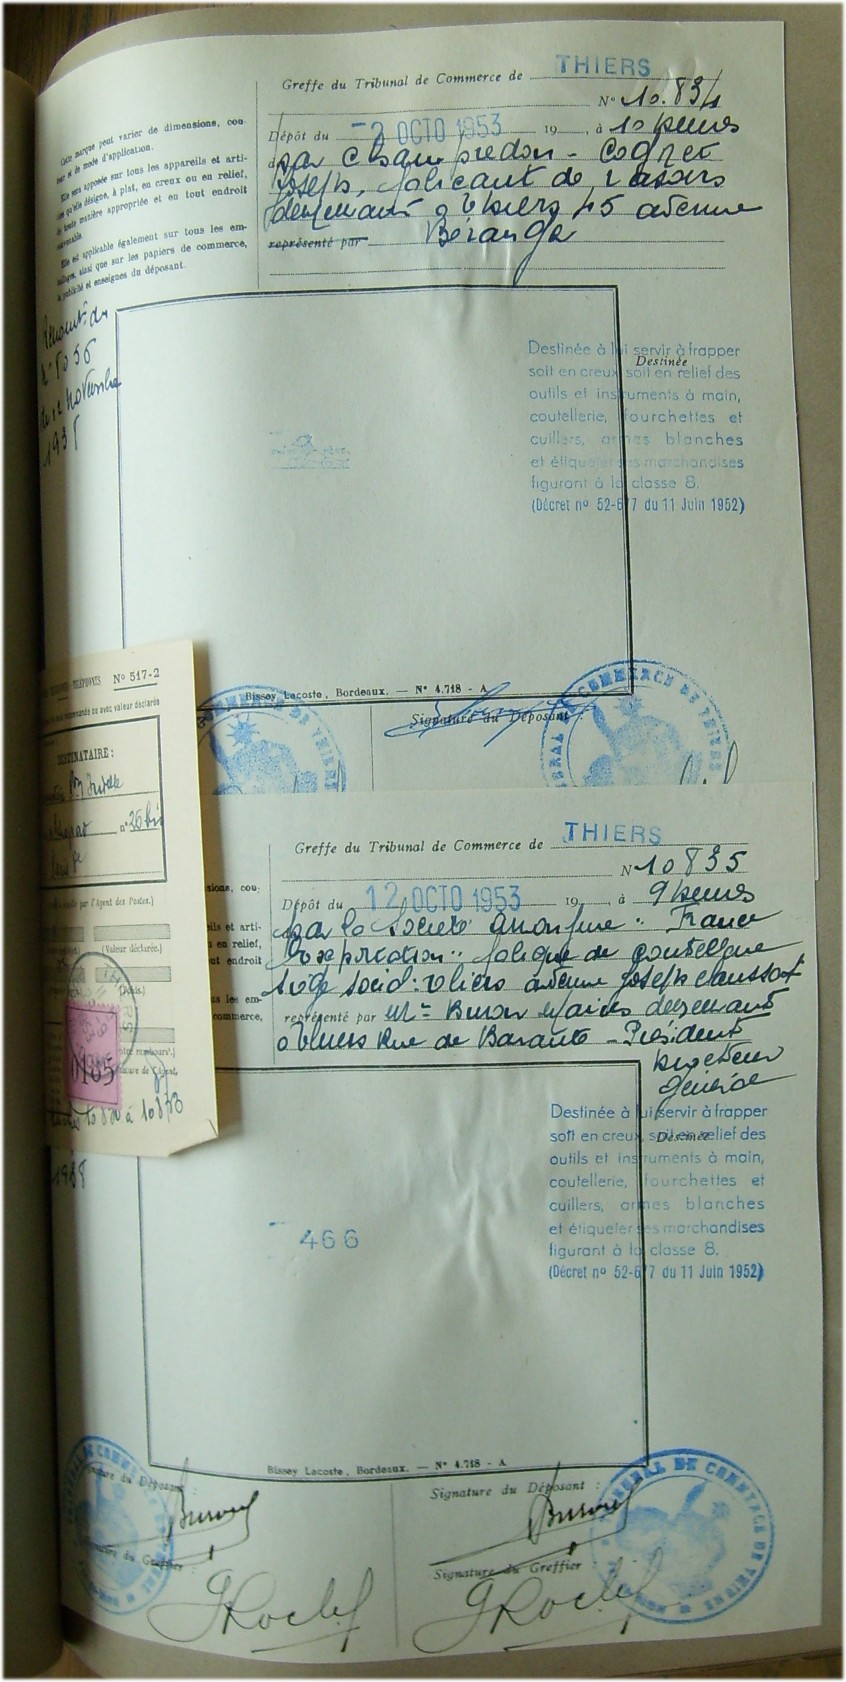 Greffe du Tribunal de Commerce de THIERS
N° 10.834
Dépôt du -2 OCTO 1953 19 , à 10 heures
par Champredon - Cognet
Joseph, fabricant de rasoirs
demeurant à Thiers 45 avenue
représenté par Béranger
Cette marque peut varier de dimensions, cou-
leur et de mode d'application.
Elle sera apposée sur tous les appareils et arti-
cles qu'elle désigne, à plat, en creux ou en relief,
de toute manière appropriée et en tout endroit
convenable.
Elle est applicable également sur tous les em-
ballages, ainsi que sur les papiers de commerce,
la publicité et enseignes du déposant.
1935
Destinée
Destinée à lui servir à frapper
soit en creux, soit en relief des
outils et instruments à main,
coutellerie, fourchettes et
cuillers, armes blanches
et étiqueter ses marchandises
figurant à la classe 8.
(Décret nº 52-677 du 11 Juin 1952)
Bissey Lacoste, Bordeaux. — Nº 4.718 - A
Signature du Déposant :
TRIBUNAL DE COMMERCE DE THIERS
Nº 517-2
recommandé ou avec valeur déclarée
DESTINATAIRE :
nº 26 bis
par l'Agent des Postes.)
(Valeur déclarée.)
0185
10833
1938
Greffe du Tribunal de Commerce de THIERS
N° 10835
Dépôt du 12 OCTO 1953 19 , à 9 heures
par la Société anonyme "France
Exportation" fabrique de coutellerie
siège social : Thiers avenue Joseph Claussat
représenté par Mr demeurant
à Thiers Rue de Barante - Président
Directeur
Général
sions, cou-
ils et arti-
en relief,
tout endroit
les em-
commerce,
Destinée
Destinée à lui servir à frapper
soit en creux, soit en relief des
outils et instruments à main,
coutellerie, fourchettes et
cuillers, armes blanches
et étiqueter ses marchandises
figurant à la classe 8.
(Décret nº 52-677 du 11 Juin 1952)
466
Bissey Lacoste, Bordeaux. — Nº 4.718 - A
Signature du Déposant :
Signature du Déposant :
Signature du Greffier :
Signature du Greffier :
TRIBUNAL DE COMMERCE DE THIERS